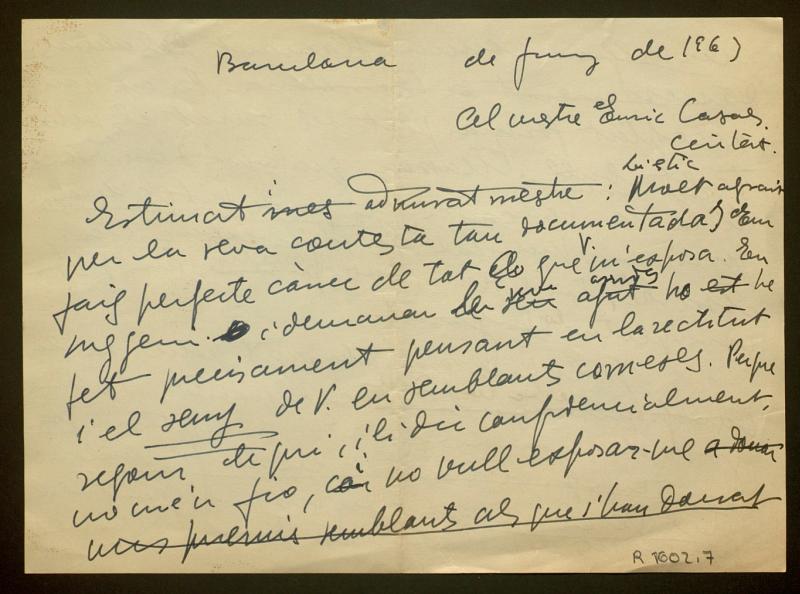 Barcelona de juny de 1963
Al mestre el Enric Casals.
Ciutat.
Estimat mes admirat mestre : Molt agrait
per la seva contesta tan documentada, Em
faig perfecte càrrec de tot lo que m'esposa. En
suggerir i demanar ajut ho est he
fet precisament pensant en la rectitut
i el seny de V. en semblants comeses. Perque
segons de qui, i li dic confidencialment,
no me'n fio, i no vull exposar-me a donar
uns premis semblants als que s'han donat
R 1602.7